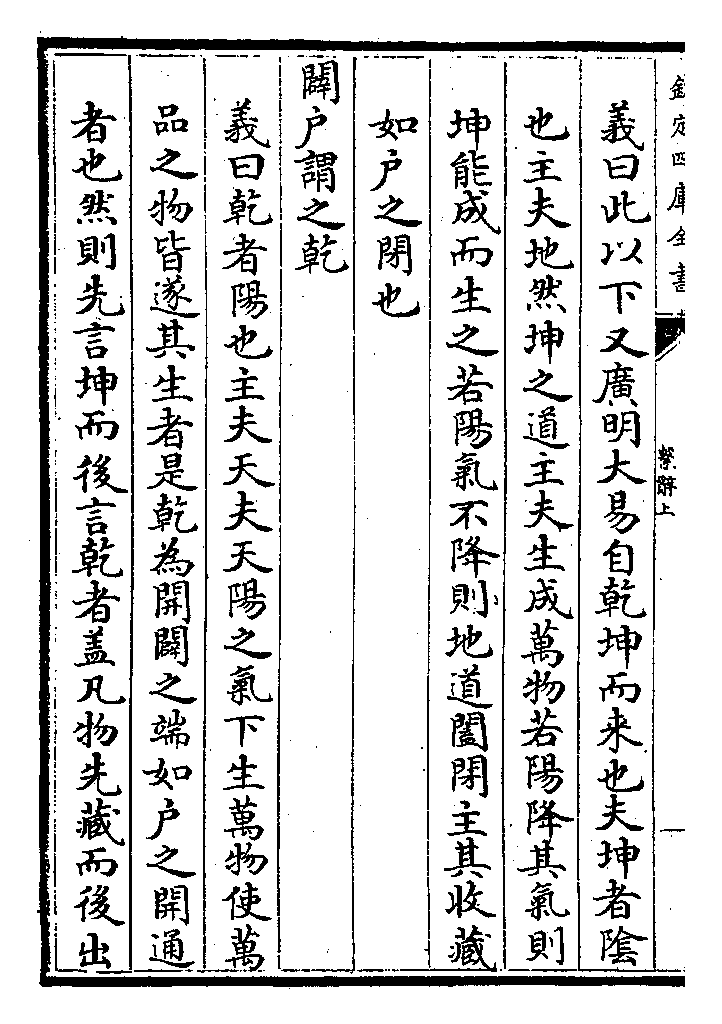 欽定四庫全書
繫辭上
義曰此以下又廣明大易自乾坤而来也夫坤者陰
也主夫地然坤之道主夫生成萬物若陽降其氣則
坤能成而生之若陽氣不降則地道闔閉主其收藏
如户之閉也
闢户謂之乾
義曰乾者陽也主夫天夫天陽之氣下生萬物使萬
品之物皆遂其生者是乾為開闢之端如户之開通
者也然則先言坤而後言乾者盖凡物先藏而後出